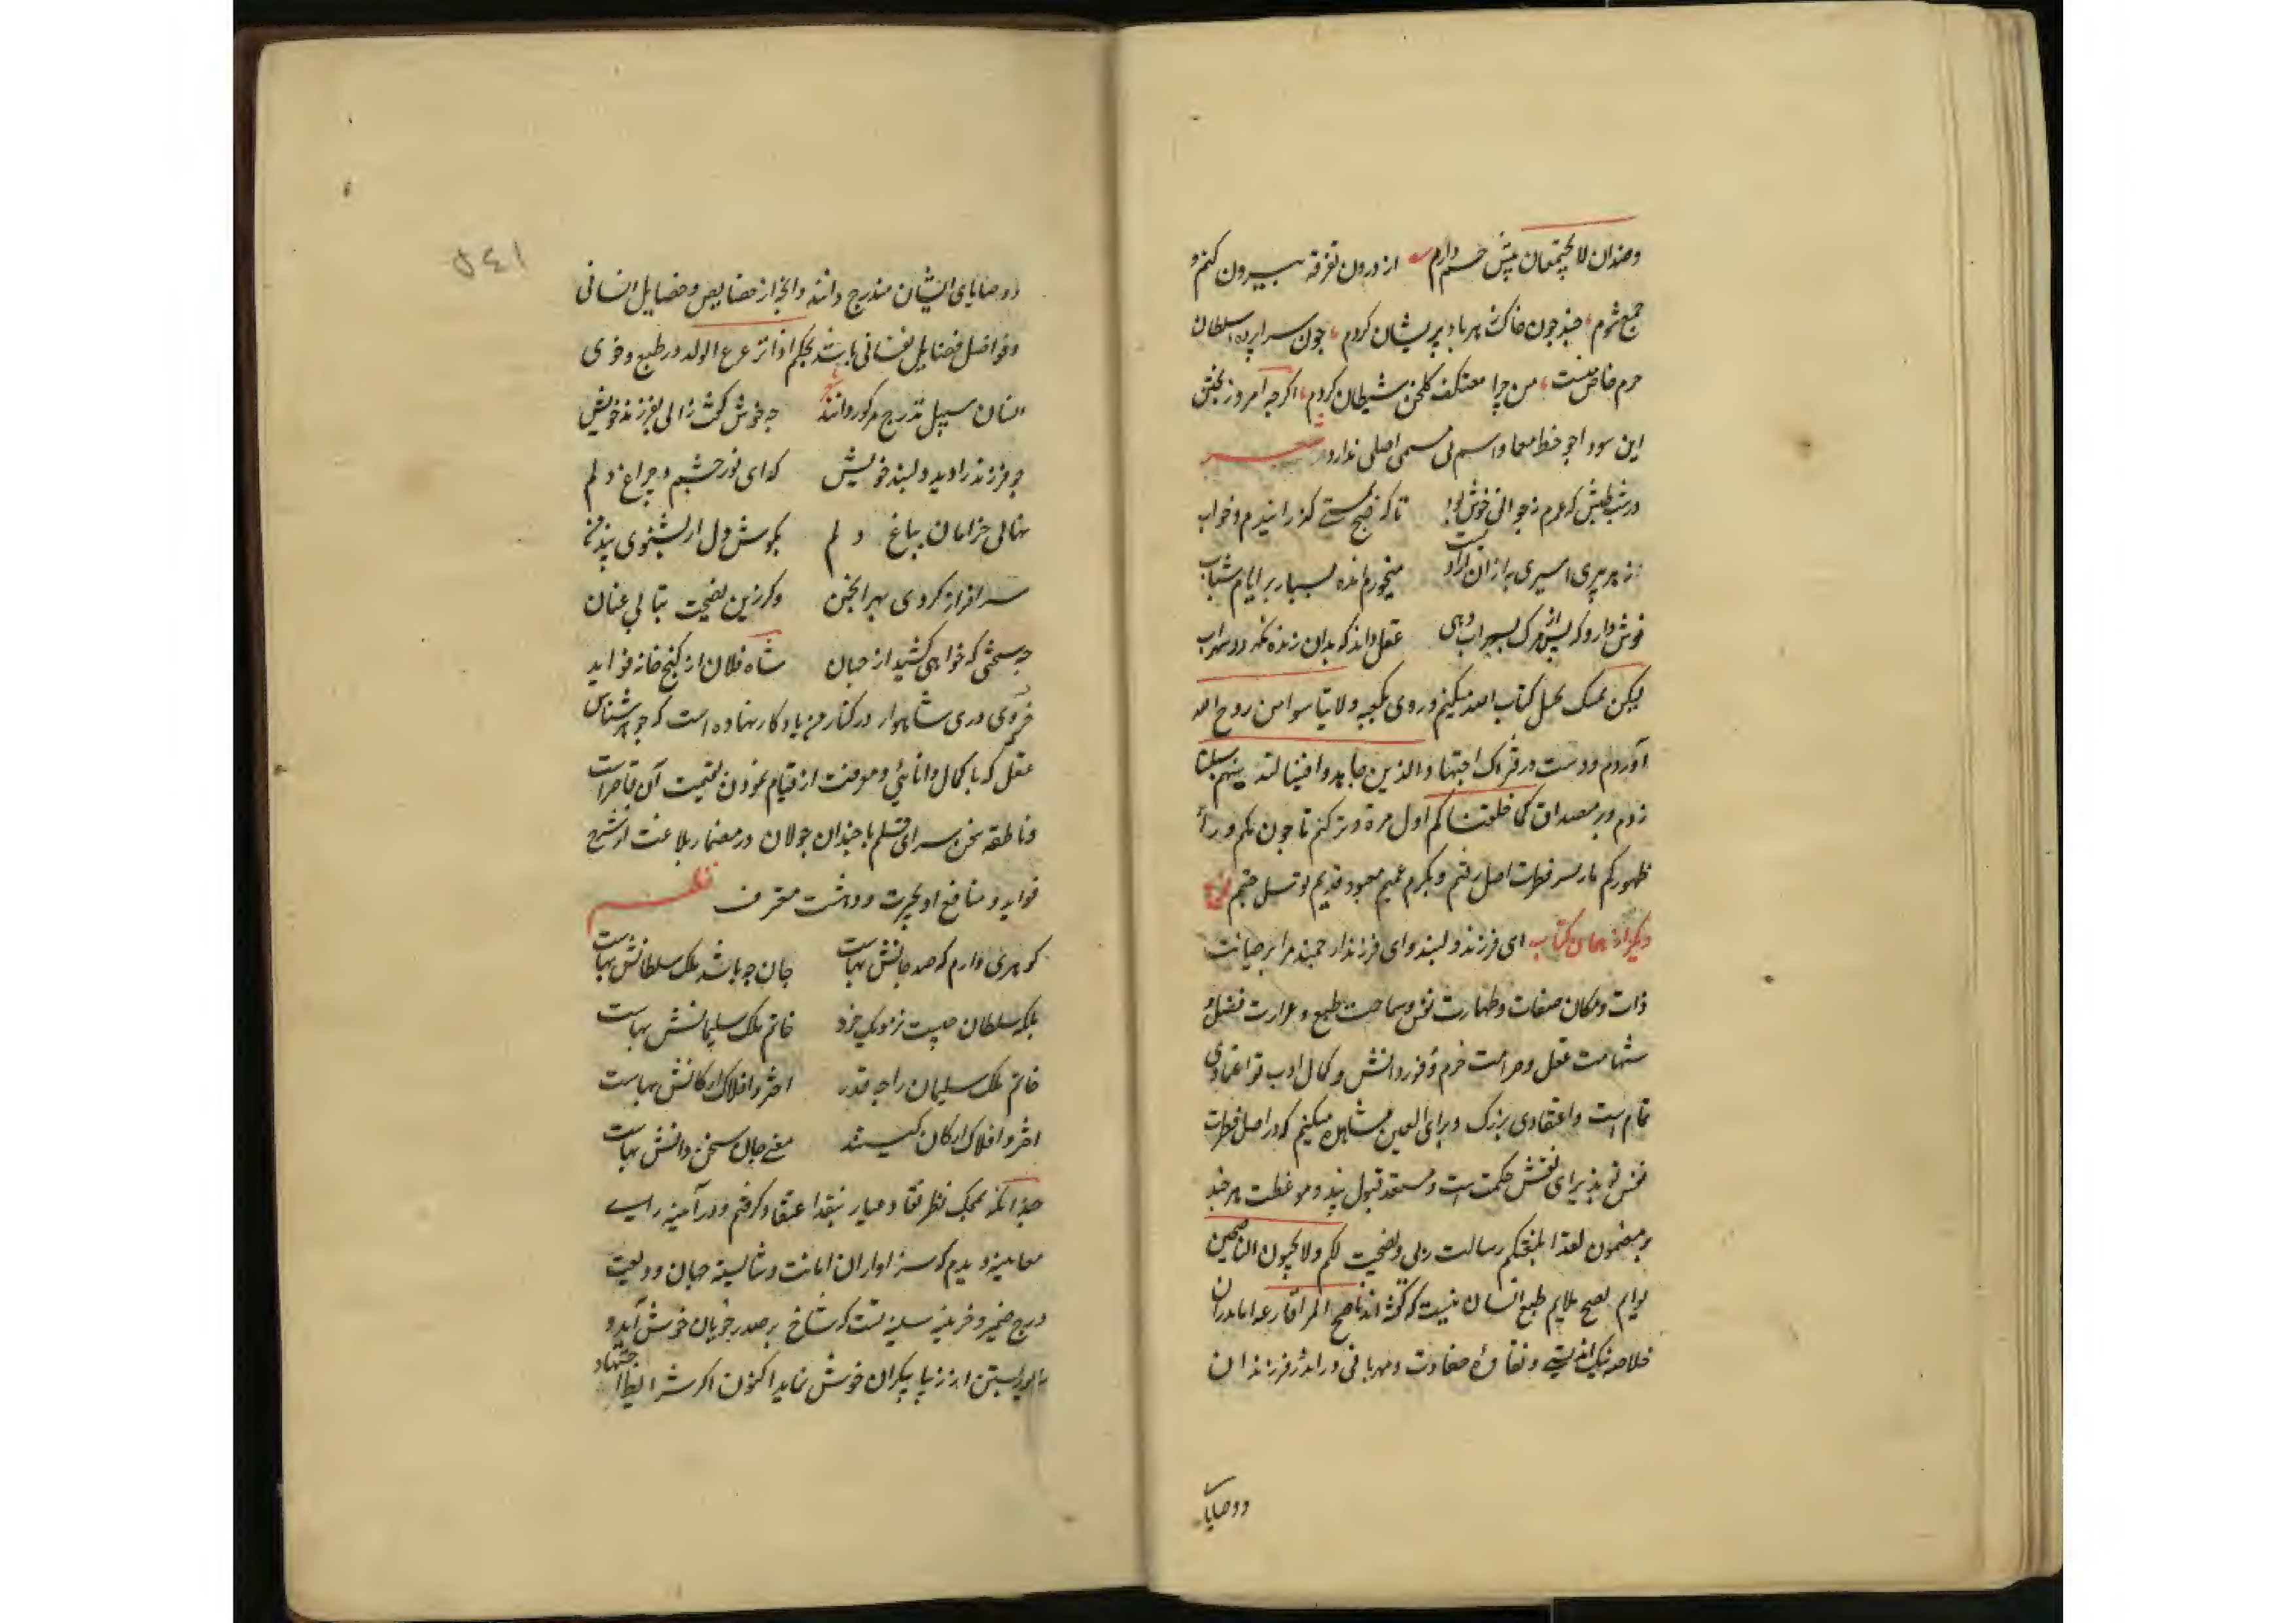 وضدان لا یجتمعان پیش خسم دارم از درون تفرقه بیرون کنم و
جمع شوم، چند چون خاک ز هر باد پریشان کردم، چون سراپرده سلطان
حرم خاص منست، من چرا معتکف گلخن شیطان کردم، اگرچه امروز نخش
این سودا چو خط معما و اسم بی مسمی اصلی ندارد شعر
در شب طیش که عمرم ز جوانی خوش بود تا که صبح گذرانیدم و خواب
میخورم انده بسیار بر ایام شباب
نوش دارو که پس از مرگ بسهراب دهی عقل داند که بدان زنده نگردد سهراب
لیکن تمسک بحبل کتاب الله میکنم و روی بکعبه ولا تیأسوا من روح الله
آوردم و دست در فتراک اجتهاد والذین جاهدوا فینا لنهدینهم سبلنا
زدم و بر مصداق کما خلقناکم اول مرة وترکتم ما خولناکم وراء
ظهورکم باز سر فطرت اصل رفتم و بکرم عمیم معبود قدیم توسل جستم
دیگر از همان کتاب ای فرزند دلبند و ای فرزند ارجمند مرا بر صیانت
ذات و مکان صفات و طهارت نفس و سماحت طبع و غزارت فضل و
شهامت عقل و صرامت حزم و وفور دانش و کمال ادب تو اعتمادی
تمام است و اعتقادی بزرگ و برای العین مشاهده میکنم که در اصل فطرت
نفس تو پذیرای نقش حکمت است و مستعد قبول پند و موعظت هر چند
بر مضمون لقد ابلغتکم رسالت ربی و نصحت لکم ولا تحبون الناصحین
نصح ملایم طبع انسان نیست که گفته اند ناصح المرء اما پدران
خلاصه نیک اندیشی و نقاوهٔ صفاوت و مهربانی در اندرز فرزندان
ووصایا
۵۴۱
ووصایای ایشان مندرج دانند و آنچه از خصایص و خصایل انسانی
و فواضل فضایل نفسانی باشد بحکم اذا ترعرع الولد در طبع و خوی
انسان سبیل تدرج مرکوز دانند چه خوش گفت زالی بفرزند خویش
چو فرزند را دید دلبند خویش که ای نور چشم و چراغ دلم
نهالی خرامان بباغ دلم بگوش دل ار بشنوی پند من
سرافراز گردی بهر انجمن وگر زین نصیحت بتابی عنان
چه سختی که خواهی کشید از جهان شاه فلان از گنج خانه فواید
دری شاهوار در کنار من یادگار نهاده است که جوهر شناس
عقل که با کمال دانایی و معرفت از قیام نمودن بقیمت آن قاصر است
و ناطقه سخن سرای قلم با چندان جولان در مضمار بلاغت از شرح
فواید و منافع او بحیرت و دهشت معترف نظم
گوهری دارم که صد جانش بهاست جان چه باشد ملک سلطانش بهاست
بلکه سلطان چیست نزدیک خرد خاتم ملک سلیمانش بهاست
خاتم ملک سلیمان را چه قدر اختر و افلاک ارکانش بهاست
اختر و افلاک ارکان کیستند معنی جان سخن دانش بهاست
چندانکه بمحک نظر نقاد عیار نقد اعتقاد گرفتم و در آینه رای
معاینه دیدم که سزاوار ان امانت و شایسته جهان ودیعت
درج ضمیر و خزینه سینه تست که شاخ بر صدر خوبان خوش آید و
بستن از زیبا پیکران خوش نماید اکنون اگر شرایط اجتهاد